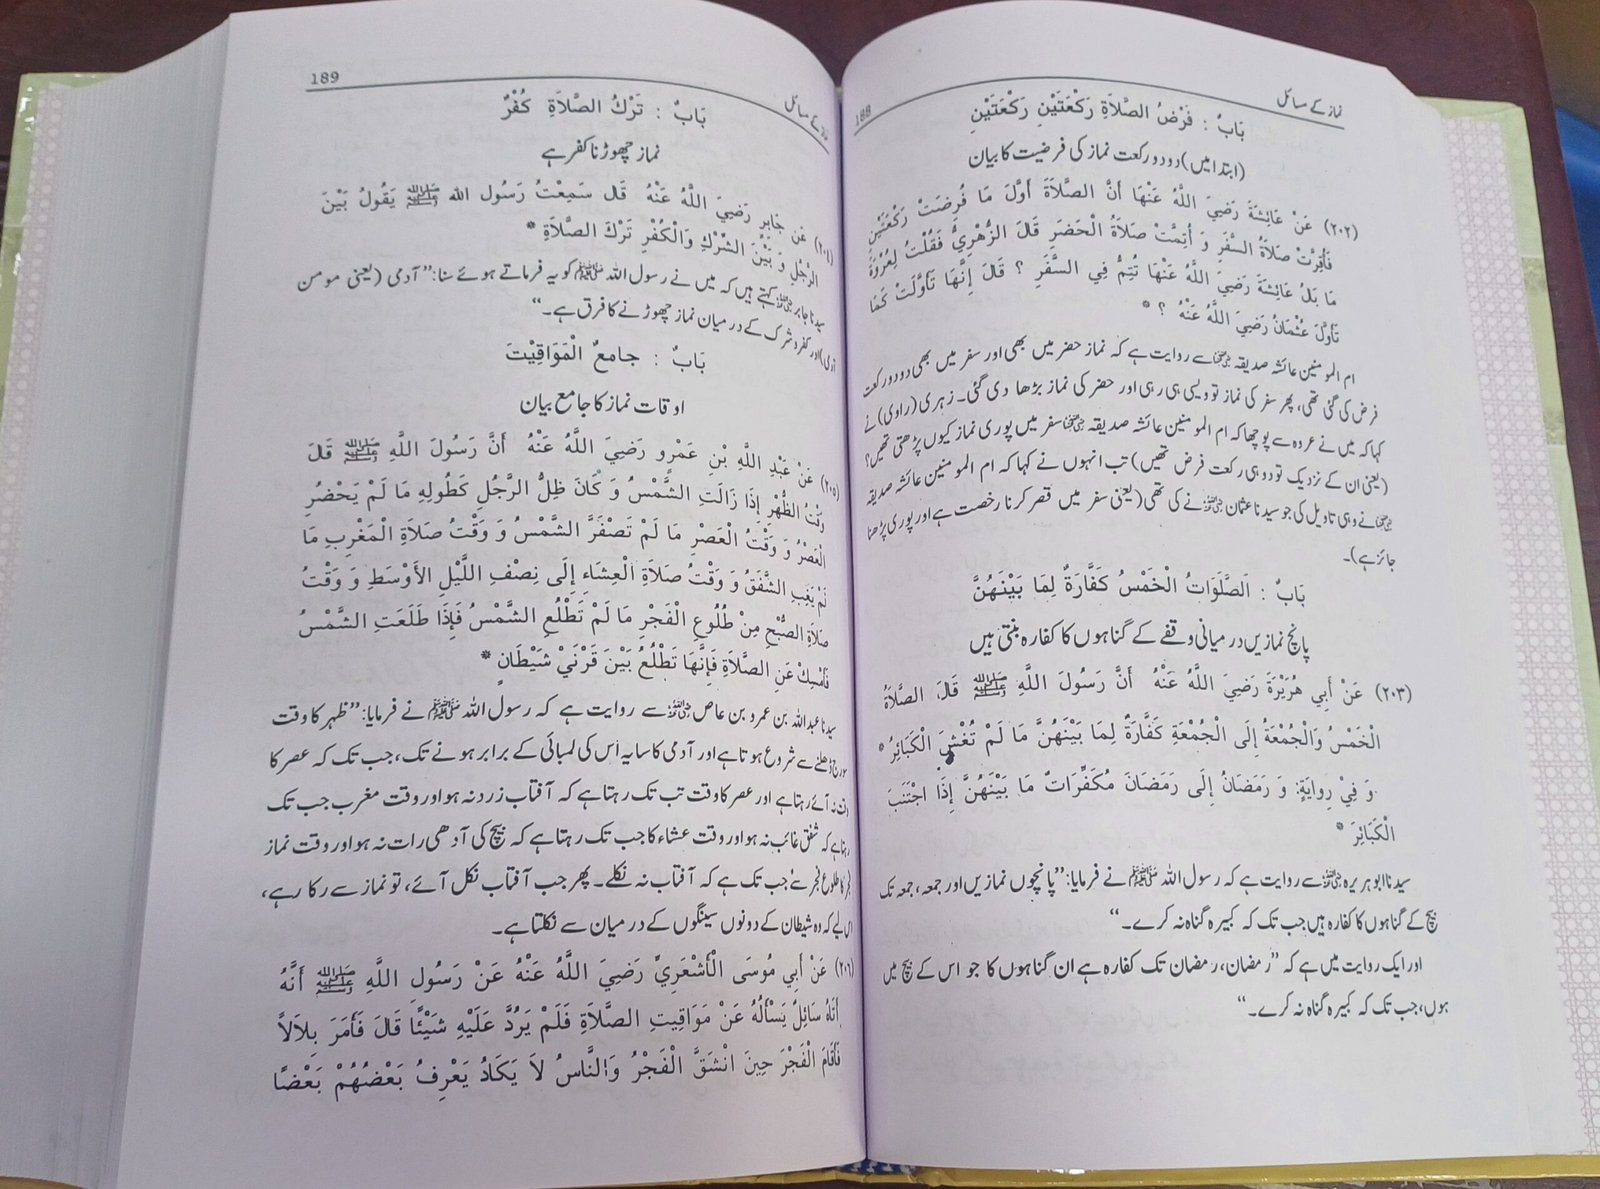 نماز کے مسائل
188
بَابٌ : فَرْضُ الصَّلاَةِ رَكْعَتَيْنِ رَكْعَتَيْنِ
(ابتدا میں) دو دو رکعت نماز کی فرضیت کا بیان
(٢٠٢) عَنْ عَائِشَةَ رَضِيَ اللَّهُ عَنْهَا أَنَّ الصَّلاَةَ أَوَّلَ مَا فُرِضَتْ رَكْعَتَيْنِ
فَأُقِرَّتْ صَلاَةُ السَّفَرِ وَ أُتِمَّتْ صَلاَةُ الْحَضَرِ قَالَ الزُّهْرِيُّ فَقُلْتُ لِعُرْوَةَ
مَا بَالُ عَائِشَةَ رَضِيَ اللَّهُ عَنْهَا تُتِمُّ فِي السَّفَرِ ؟ قَالَ إِنَّهَا تَأَوَّلَتْ كَمَا
تَأَوَّلَ عُثْمَانُ رَضِيَ اللَّهُ عَنْهُ ؟ *
ام المومنین عائشہ صدیقہ رضی اللہ عنہا سے روایت ہے کہ نماز حضر میں بھی اور سفر میں بھی دو دو رکعت
فرض کی گئی تھی، پھر سفر کی نماز تو ویسی ہی رہی اور حضر کی نماز بڑھا دی گئی۔ زہری (راوی) نے
کہا کہ میں نے عروہ سے پوچھا کہ ام المومنین عائشہ صدیقہ رضی اللہ عنہا سفر میں پوری نماز کیوں پڑھتی تھیں؟
(یعنی ان کے نزدیک تو دو ہی رکعت فرض تھیں) تب انہوں نے کہا کہ ام المومنین عائشہ صدیقہ
رضی اللہ عنہا نے وہی تاویل کی جو سیدنا عثمان رضی اللہ عنہ نے کی تھی (یعنی سفر میں قصر کرنا رخصت ہے اور پوری پڑھنا
جائز ہے)۔
بَابٌ : اَلصَّلَوَاتُ الْخَمْسُ كَفَّارَةٌ لِمَا بَيْنَهُنَّ
پانچ نمازیں درمیانی وقفے کے گناہوں کا کفارہ بنتی ہیں
(٢٠٣) عَنْ أَبِي هُرَيْرَةَ رَضِيَ اللَّهُ عَنْهُ أَنَّ رَسُولَ اللَّهِ ﷺ قَالَ الصَّلاَةُ
الْخَمْسُ وَالْجُمْعَةُ إِلَى الْجُمْعَةِ كَفَّارَةٌ لِمَا بَيْنَهُنَّ مَا لَمْ تُغْشَ الْكَبَائِرُ *
وَ فِيْ رِوَايَةٍ: وَ رَمَضَانُ إِلَى رَمَضَانَ مُكَفِّرَاتٌ مَا بَيْنَهُنَّ إِذَا اجْتَنَبَ
الْكَبَائِرَ *
سیدنا ابوہریرہ رضی اللہ عنہ سے روایت ہے کہ رسول اللہ ﷺ نے فرمایا: ”پانچوں نمازیں اور جمعہ، جمعہ تک
بیچ کے گناہوں کا کفارہ ہیں جب تک کہ کبیرہ گناہ نہ کرے۔“
اور ایک روایت میں ہے کہ ”رمضان، رمضان تک کفارہ ہے ان گناہوں کا جو اس کے بیچ میں
ہوں، جب تک کہ کبیرہ گناہ نہ کرے۔“
کے مسائل
189
بَابٌ : تَرْكُ الصَّلاَةِ كُفْرٌ
نماز چھوڑنا کفر ہے
(٢٠٤) عَن جَابِرٍ رَضِيَ اللَّهُ عَنْهُ قَال سَمِعْتُ رَسُول الله ﷺ يَقُولُ بَيْنَ
الرَّجُلِ وَ بَيْنَ الشِّرْكِ وَالْكُفْرِ تَرْكَ الصَّلاَةِ *
سیدنا جابر رضی اللہ عنہ کہتے ہیں کہ میں نے رسول اللہ ﷺ کو یہ فرماتے ہوئے سنا: ”آدمی (یعنی مومن
آدمی) اور کفر و شرک کے درمیان نماز چھوڑنے کا فرق ہے۔“
بَابٌ : جامعُ الْمَوَاقِيْتَ
اوقات نماز کا جامع بیان
(٢٠٥) عَنْ عَبْدِ اللَّهِ بْنِ عَمْرٍو رَضِيَ اللَّهُ عَنْهُ أَنَّ رَسُولَ اللَّهِ ﷺ قَالَ
وَقْتُ الظُّهْرِ إِذَا زَالَتِ الشَّمْسُ وَ كَانَ ظِلُّ الرَّجُلِ كَطُولِهِ مَا لَمْ يَحْضُرِ
الْعَصْرُ وَ وَقْتُ الْعَصْرِ مَا لَمْ تَصْفَرَّ الشَّمْسُ وَ وَقْتُ صَلاَةِ الْمَغْرِبِ مَا
لَمْ يَغِبِ الشَّفَقُ وَ وَقْتُ صَلاَةِ الْعِشَاءِ إِلَى نِصْفِ اللَّيْلِ الأَوْسَطِ وَ وَقْتُ
صَلاَةِ الصُّبْحِ مِنْ طُلُوعِ الْفَجْرِ مَا لَمْ تَطْلُعِ الشَّمْسُ فَإِذَا طَلَعَتِ الشَّمْسُ
فَأَمْسِكْ عَنِ الصَّلاَةِ فَإِنَّهَا تَطْلُعُ بَيْنَ قَرْنَيْ شَيْطَانٍ *
سیدنا عبداللہ بن عمرو بن عاص رضی اللہ عنہ سے روایت ہے کہ رسول اللہ ﷺ نے فرمایا: ”ظہر کا وقت
سورج ڈھلنے سے شروع ہوتا ہے اور آدمی کا سایہ اس کی لمبائی کے برابر ہونے تک، جب تک کہ عصر کا
وقت نہ آئے رہتا ہے اور عصر کا وقت تب تک رہتا ہے کہ آفتاب زرد نہ ہو اور وقت مغرب جب تک
رہتا ہے کہ شفق غائب نہ ہو اور وقت عشاء کا جب تک رہتا ہے کہ بیچ کی آدھی رات نہ ہو اور وقت نماز
فجر کا طلوع فجر سے جب تک ہے کہ آفتاب نہ نکلے۔ پھر جب آفتاب نکل آئے، تو نماز سے رکا رہے،
اس لیے کہ وہ شیطان کے دونوں سینگوں کے درمیان سے نکلتا ہے۔
(٢٠٦) عَنْ أَبِي مُوسَى الْأَشْعَرِيِّ رَضِيَ اللَّهُ عَنْهُ عَنْ رَسُولِ اللَّهِ ﷺ أَنَّهُ
أَتَاهُ سَائِلٌ يَسْأَلُهُ عَنْ مَوَاقِيتِ الصَّلاَةِ فَلَمْ يَرُدَّ عَلَيْهِ شَيْئًا قَالَ فَأَمَرَ بِلاَلاً
فَأَقَامَ الْفَجْرَ حِينَ انْشَقَّ الْفَجْرُ وَالنَّاسُ لاَ يَكَادُ يَعْرِفُ بَعْضُهُمْ بَعْضًا